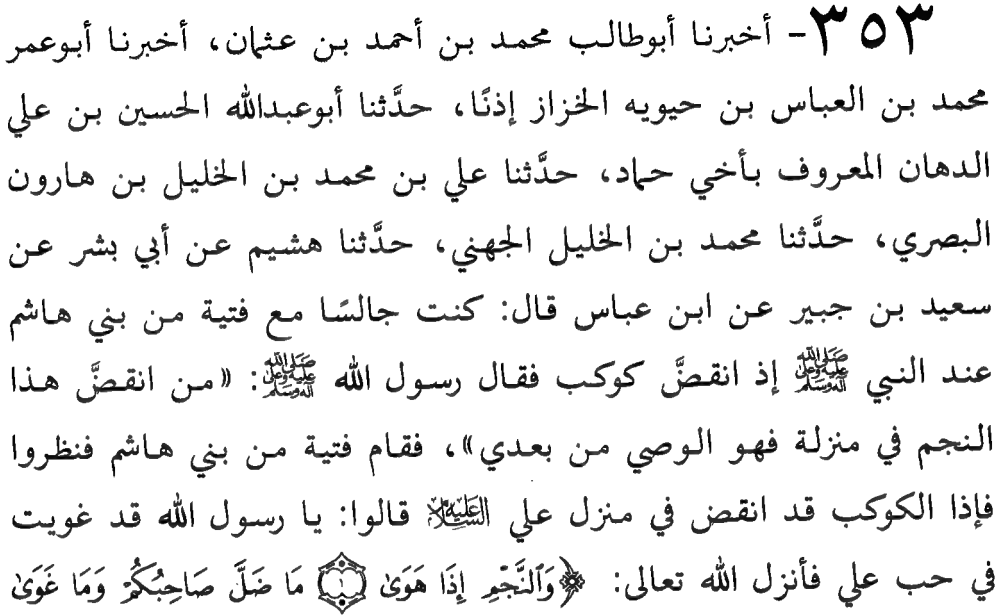 ٣٥٣- أخبرنا أبوطالب محمد بن أحمد بن عثمان، أخبرنا أبوعمر
محمد بن العباس بن حيويه الخزاز إذنًا، حدَّثنا أبوعبدالله الحسين بن علي
الدهان المعروف بأخي حماد، حدَّثنا علي بن محمد بن الخليل بن هارون
البصري، حدَّثنا محمد بن الخليل الجهني، حدَّثنا هشيم عن أبي بشر عن
سعيد بن جبير عن ابن عباس قال: كنت جالسًا مع فتية من بني هاشم
عند النبي ﷺ إذ انقضَّ كوكب فقال رسول الله ﷺ: «من انقضَّ هذا
النجم في منزلة فهو الوصي من بعدي»، فقام فتية من بني هاشم فنظروا
فإذا الكوكب قد انقض في منزل علي عليه السلام قالوا: يا رسول الله قد غويت
في حب علي فأنزل الله تعالى: ﴿وَٱلنَّجْمِ إِذَا هَوَىٰ ١ مَا ضَلَّ صَاحِبُكُمْ وَمَا غَوَىٰ